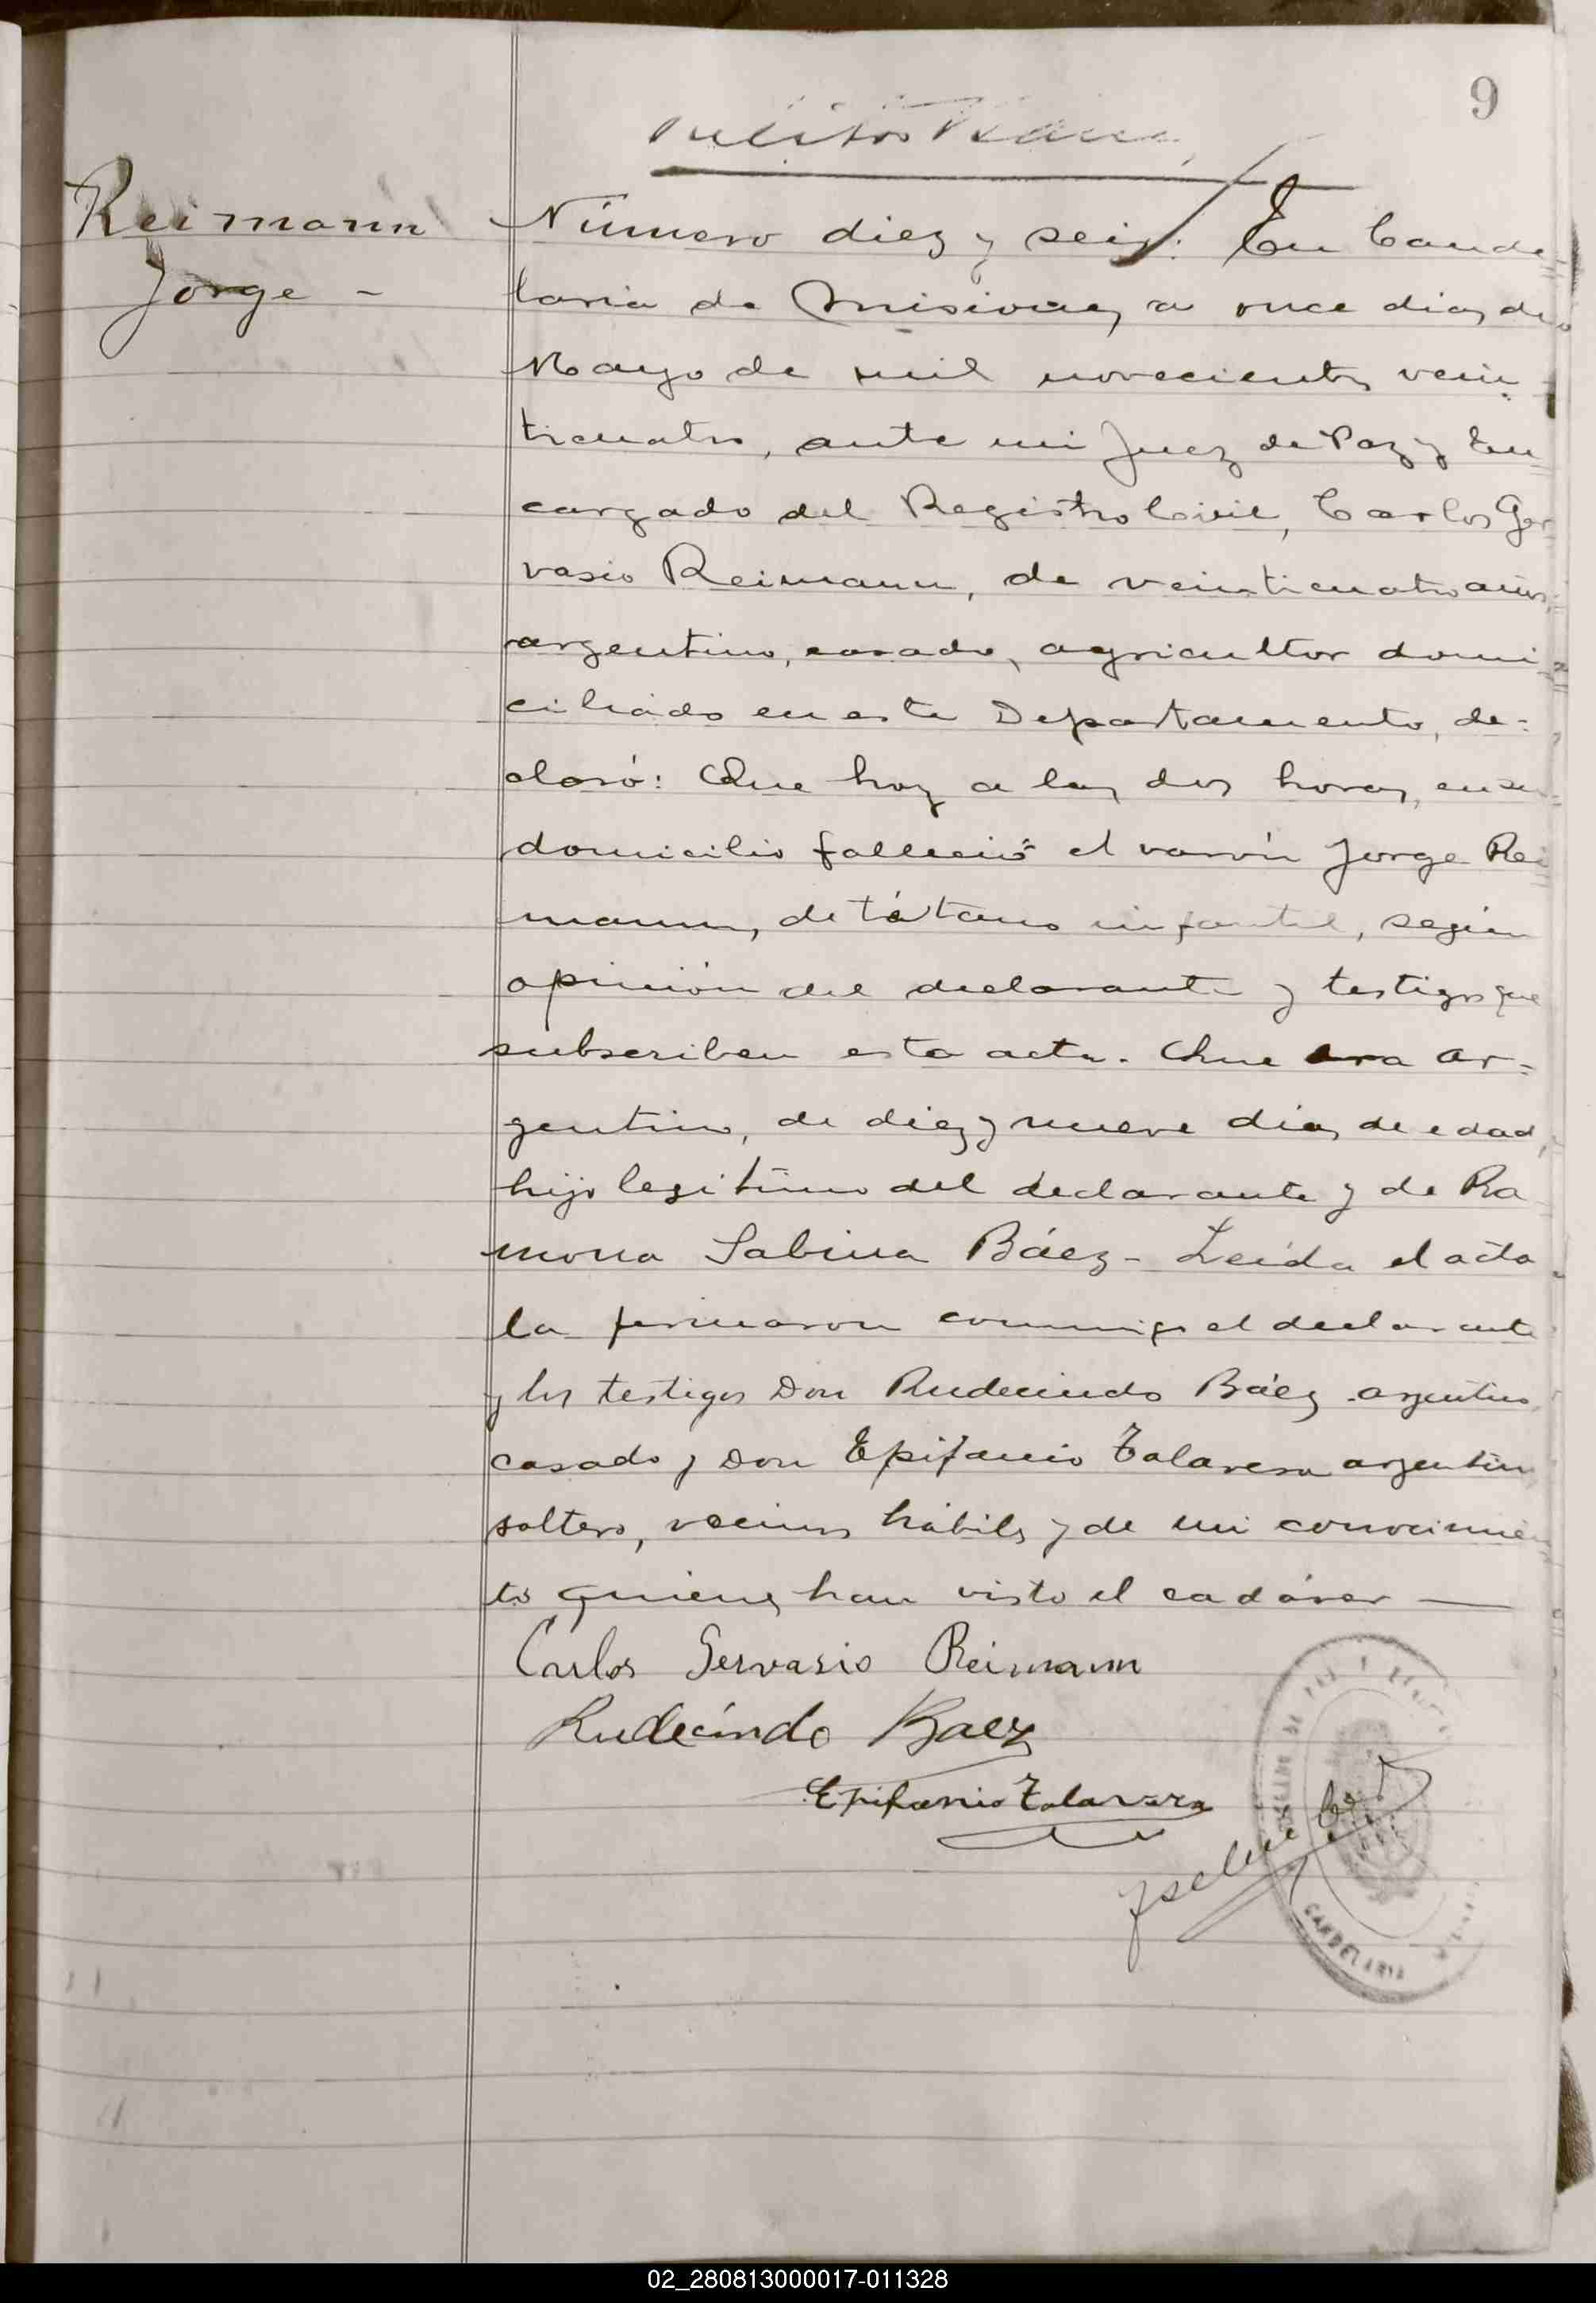 9
Reimann
Jorge -
Número diez y seis: En Cande-
laria de Misiones, a once dias de
Mayo de mil novecientos vein-
ticuatro, ante mi Juez de Paz y En-
cargado del Registro Civil, Carlos Ger
vasio Reimann, de veinticuatro años,
argentino, casado, agricultor domi-
ciliado en este Departamento, de-
claró: Que hoy a las dos horas, en su
domicilio falleció el varón Jorge Rei
mann, de tétano infantil, según
opinión del declarante y testigos que
subscriben esta acta. Que era ar-
gentino, de diez y nueve dias de edad,
hijo legitimo del declarante y de Ra
mona Sabina Báez - Leida el acta
la firmaron conmigo el declarante
y los testigos Don Rudecindo Báez argentino,
casado y Don Epifanio Talavera argentino
soltero, vecinos hábiles y de mi conocimien
to quienes han visto el cadáver —
Carlos Gervasio Reimann
Rudecindo Baez
Epifanio Talavera
JUZGADO DE PAZ Y
CANDELARIA
02_280813000017-011328